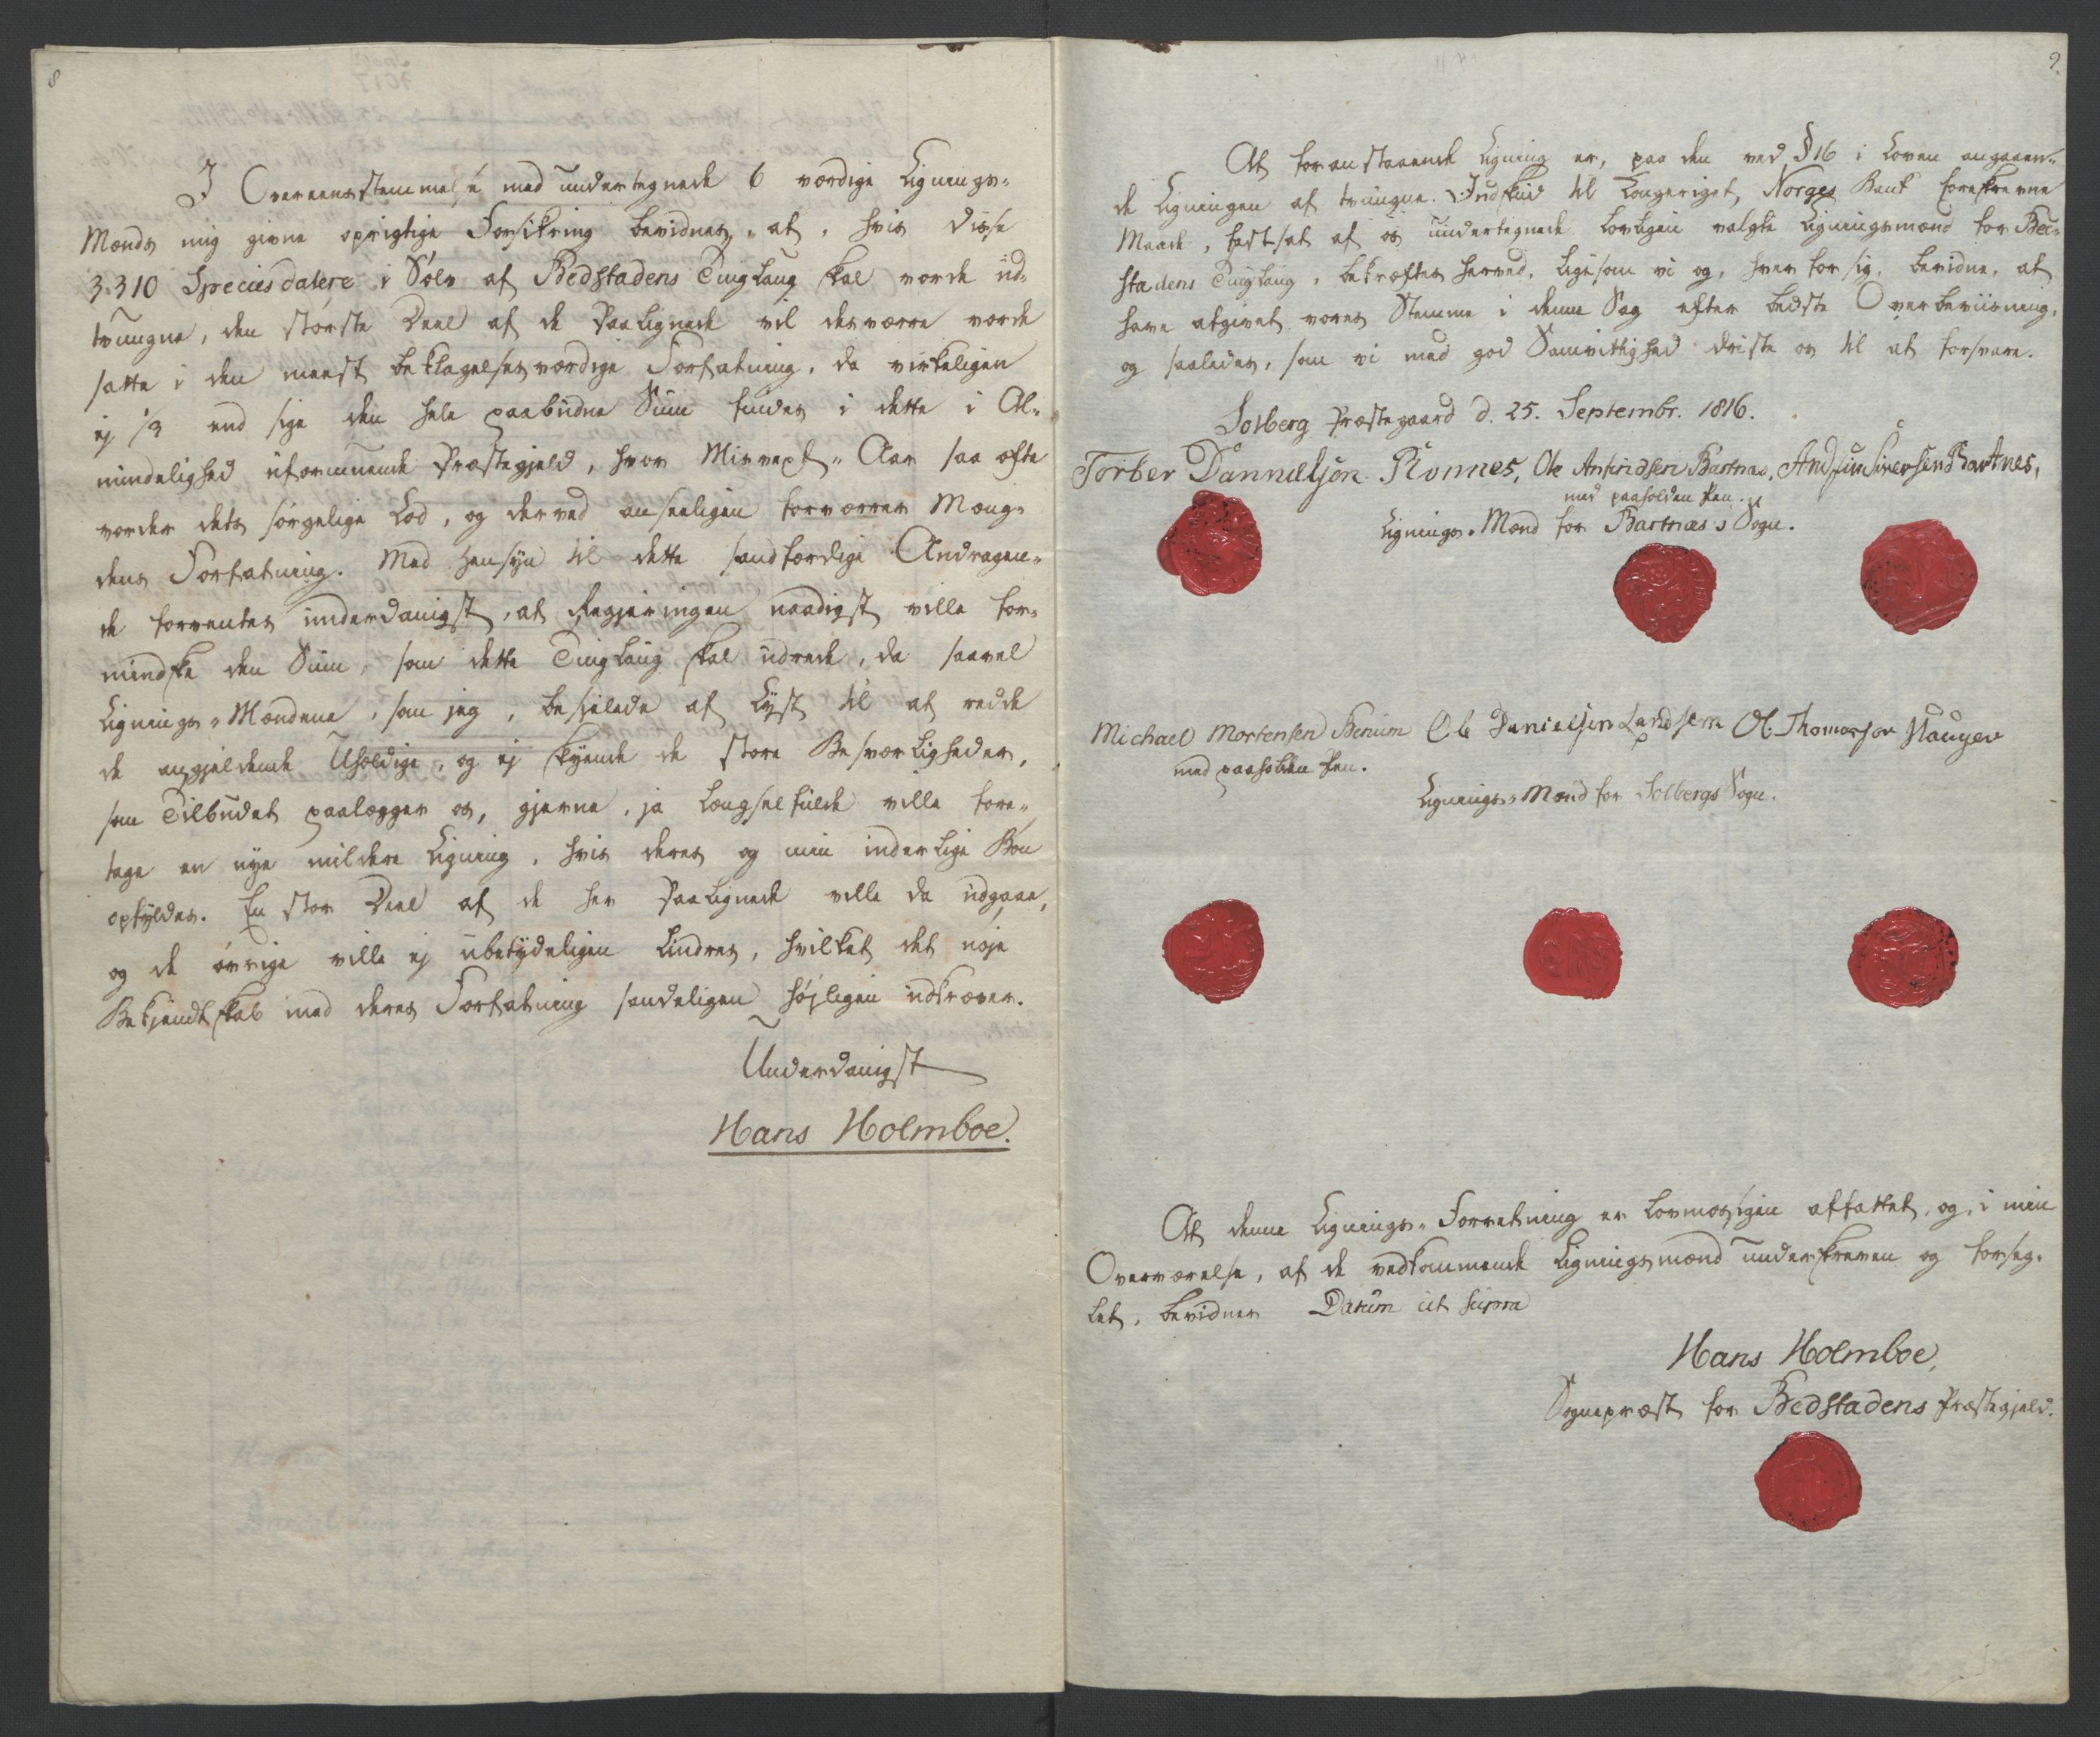 8
I Overeensstemmelse med undertegnede 6 værdige Lignings-
Mænds mig givne oprigtige Forsikring bevidnes, at, hvis disse
3310 Speciesdalere i Sølv af Bedstadens Tinglaug skal vorde ud-
tvungne, den største Deel af de Paalignede vil desværre vorde
satte i den meest beklagelsesværdige Forfatning, da virkeligen
ej 1/3 end sige den hele paabudne Sum findes i dette i Al-
mindelighed uformuende Præstegjeld, hvor Misvext-Aar saa ofte
vorder dets sørgelige Lod, og derved anseeligen forværrer Mæng-
dens Forfatning. Med Hensyn til dette sandfærdige Andragen-
de forventes underdanigst, at Regjeringen naadigst ville for-
mindske den Sum, som dette Tinglaug skal udrede, da saavel
Lignings-Mændene, som jeg, besjelede af Lyst til at redde
de angjeldende Uskyldige, og ej skyende de store Besværligheder,
som Tilbudet paalægger os, gjerne, ja længselfulde ville fore-
tage en nye mildere Ligning, hvis deres og min inderlige Bøn
opfyldes. En stor Deel af de her Paalignede ville da udgaae,
og de øvrige ville ej ubetydeligen lindres, hvilket det nøje
Bekjendtskab med deres Forfatning sandeligen højligen udkræver.
Underdanigst
Hans Holmboe.
9.
At foranstaaende Ligning er, paa den ved § 16 i Loven angaaen-
de Ligningen af tvungne Indskud til Kongeriget Norges Bank foreskrevne
Maade, fastsat af os undertegnede lovligen valgte Ligningsmænd for Bed-
stadens Tinglaug, bekræftes herved, ligesom vi og, hver for sig, bevidne, at
have afgivet vores Stemme i denne Sag efter bedste Overbeviisning,
og saaledes, som vi med god Samvittighed driste os til at forsvare.
Solberg Præstegaard d. 25. Septembr. 1816.
Torber Dannelsen Rømnes, Ole Anfindsen Bartnas, Andfin Siversen Bartnes,
med paaholden Pen.
Lignings-Mænd for Bartnæs's Sogn.
Michael Mortensen Benum Ole Danielsen Landsem Ol Thomasson Hauger
med paaholden Pen.
Lignings-Mænd for Solbergs Sogn.
At denne Lignings-Forretning er lovmæssigen affattet, og, i min
Overværelse, af de vedkommende Ligningsmænd underskreven og forseg-
let, bevidner Datum ut supra
Hans Holmboe,
Sognepræst for Bedstadens Præstegjeld.